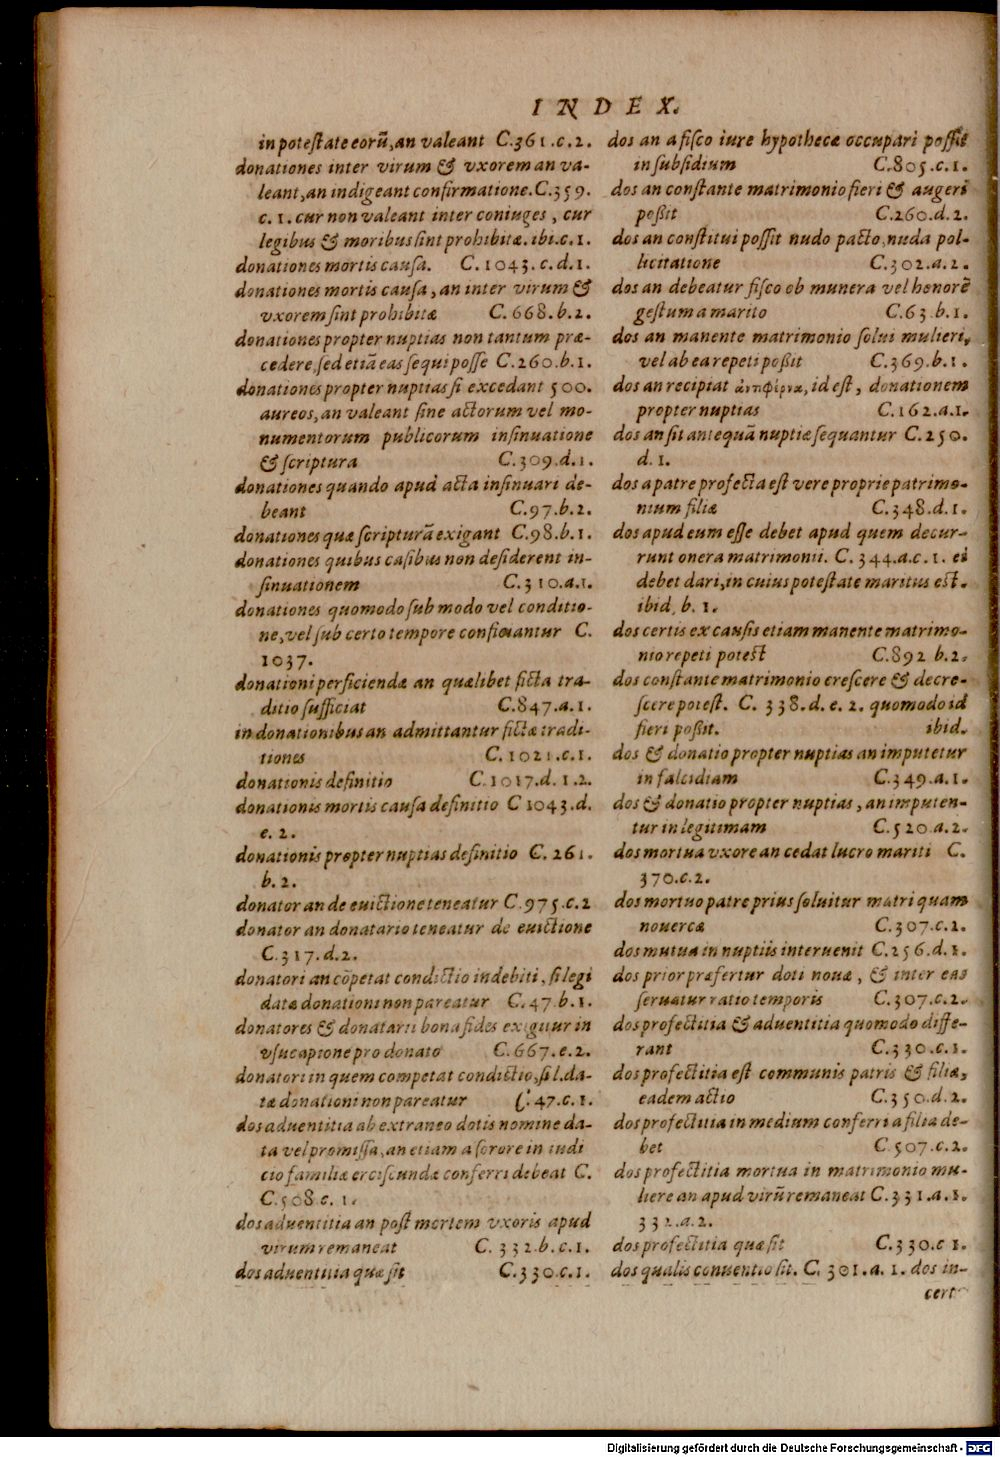 INDEX.
in potestate eorũ, an valeant C.361.c.2.
donationes inter virum & vxorem an va-
leant, an indigeant confirmatione. C.359.
c. 1. cur non valeant inter coniuges, cur
legibus & moribus sint prohibitæ. ibi.c.1.
donationes mortis causa. C. 1043. c.d.1.
donationes mortis causa, an inter virum &
vxorem sint prohibitæ C. 668.b.2.
donationes propter nuptias non tantum præ-
cedere, sed etiã eas sequi posse C.260.b.1.
donationes propter nuptias si excedant 500.
aureos, an valeant sine actorum vel mo-
numentorum publicorum insinuatione
& scriptura C.309.d.1.
donationes quando apud acta insinuari de-
beant C.97.b.2.
donationes quæ scripturã exigant C.98.b.1.
donationes quibus casibus non desiderent in-
sinuationem C.310.a.1.
donationes quomodo sub modo vel conditio-
ne, vel sub certo tempore conficiantur C.
1037.
donationi perficiendæ an quælibet ficta tra-
ditio sufficiat C.847.a.1.
in donationibus an admittantur fictæ tradi-
tiones C. 1021.c.1.
donationis definitio C.1017.d.1.2.
donationis mortis causa definitio C 1043.d.
e. 2.
donationis propter nuptias definitio C. 261.
b. 2.
donator an de euictione teneatur C.975.c.2
donator an donatario teneatur de euictione
C.317.d.2.
donatori an cõpetat condictio indebiti, si legi
datæ donationi non pareatur C.47.b.1.
donatores & donatarii bona fides exigitur in
vsucapione pro donato C.667.e.2.
donatori in quem competat condictio, si l.da-
tæ donationi non pareatur C. 47.c.1.
dos aduentitia ab extraneo dotis nomine da-
ta vel promissa, an etiam a sorore in iudi
cio familiæ erciscundæ conferri debeat C.
C.508.c. 1.
dos aduentitia an post mortem vxoris apud
virum remaneat C. 332.b.c.1.
dos aduentitia quæ sit C.330.c.1.
dos an a fisco iure hypothecæ occupari possit
in subsidium C.805.c.1.
dos an constante matrimonio fieri & augeri
poßit C.260.d.2.
dos an constitui possit nudo pacto, nuda pol-
licitatione C.302.a.2.
dos an debeatur fisco ob munera vel honorẽ
gestum a marito C.63.b.1.
dos an manente matrimonio solui mulieri,
vel ab ea repeti poßit C.369.b.1.
dos an recipiat ἀντιφέρνα, id est, donationem
propter nuptias C.162.a.1.
dos an sit antequã nuptiæ sequantur C.250.
d.1.
dos a patre profecta est vere proprie patrimo-
nium filiæ C.348.d.1.
dos apud eum esse debet apud quem decur-
runt onera matrimonii. C. 344.a.c. 1. ei
debet dari, in cuius potestate maritus est.
ibid. b. 1.
dos certis ex causis etiam manente matrimo-
nio repeti potest C.892 b.2.
dos constante matrimonio crescere & decre-
scere potest. C. 338.d. e. 2. quomodo id
fieri poßit. ibid.
dos & donatio propter nuptias an imputetur
in falcidiam C.349.a.1.
dos & donatio propter nuptias, an imputen-
tur in legitimam C.520.a.2.
dos mortua vxore an cedat lucro mariti C.
370.c.2.
dos mortuo patre prius soluitur matri quam
nouercæ C.307.c.2.
dos mutua in nuptiis interuenit C.256.d.1.
dos prior præfertur doti nouæ, & inter eas
seruatur ratio temporis C.307.c.2.
dos profectitia & aduentitia quomodo diffe-
rant C.330.c.1.
dos profectitia est communis patris & filiæ,
eadem actio C.350.d.2.
dos profectitia in medium conferri a filia de-
bet C.507.c.2.
dos profectitia mortua in matrimonio mu-
liere an apud virũ remaneat C.331.a.1.
332.a.2.
dos profectitia quæ sit C.330.c 1.
dos qualis conuentio sit. C. 301.a. 1. dos in-
cert
Digitalisierung gefördert durch die Deutsche Forschungsgemeinschaft - DFG